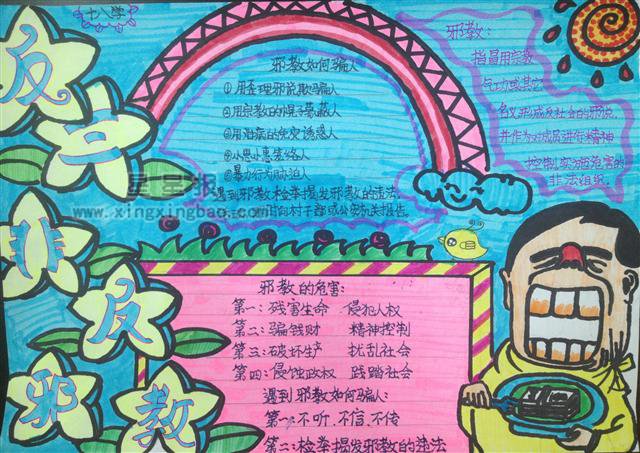 十八学
反
二
非
反
邪
教
邪教如何骗人
①用歪理邪说欺骗人
②用宗教的幌子蒙蔽人
③用治病的免灾诱惑人
④小恩小惠笼络人
⑤暴力行为胁迫人
遇到邪教检举揭发邪教的违法
向村干部或公安机关报告。
邪教:
指冒用宗教
气功或其它
名义形成反社会的邪说,
并作为对成员进行精神
控制,实施危害的
非法组织.
星星报
www.xingxingbao.com
邪教的危害:
第一:残害生命 侵犯人权
第二:骗钱财 精神控制
第三:破坏生产 扰乱社会
第四:侵蚀政权 践踏社会
遇到邪教如何骗人:
第一:不听.不信.不传
第二:检举揭发邪教的违法